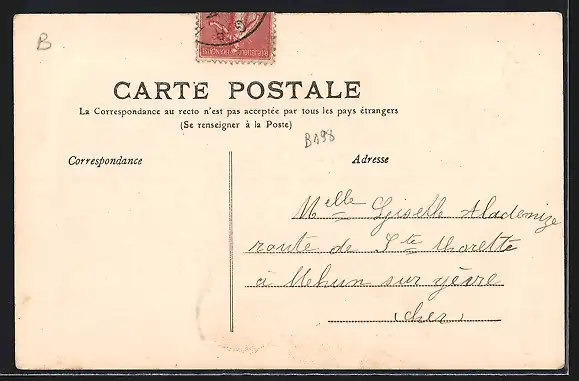 B
REPUBLIQUE FRANÇAISE
CARTE POSTALE
La Correspondance au recto n'est pas acceptée par tous les pays étrangers
(Se renseigner à la Poste)
B198
Correspondance
Adresse
Melle Giselle Aladenize
route de Ste Thorette
à Mehun sur yèvre
(cher)